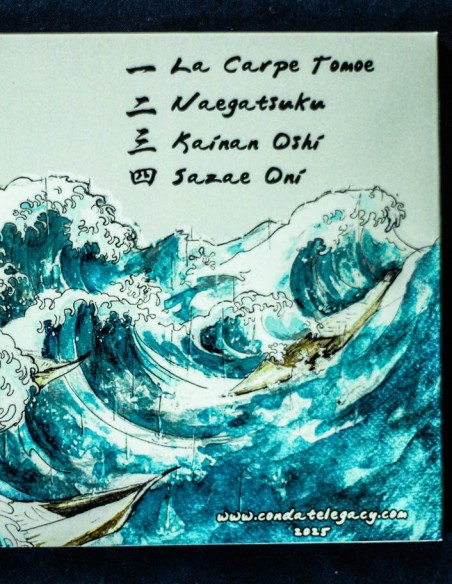 一 La Carpe Tomoe
二 Naegatsuku
三 Kainan Oshi
四 Sazae Oni
www.condatelegacy.com
2025